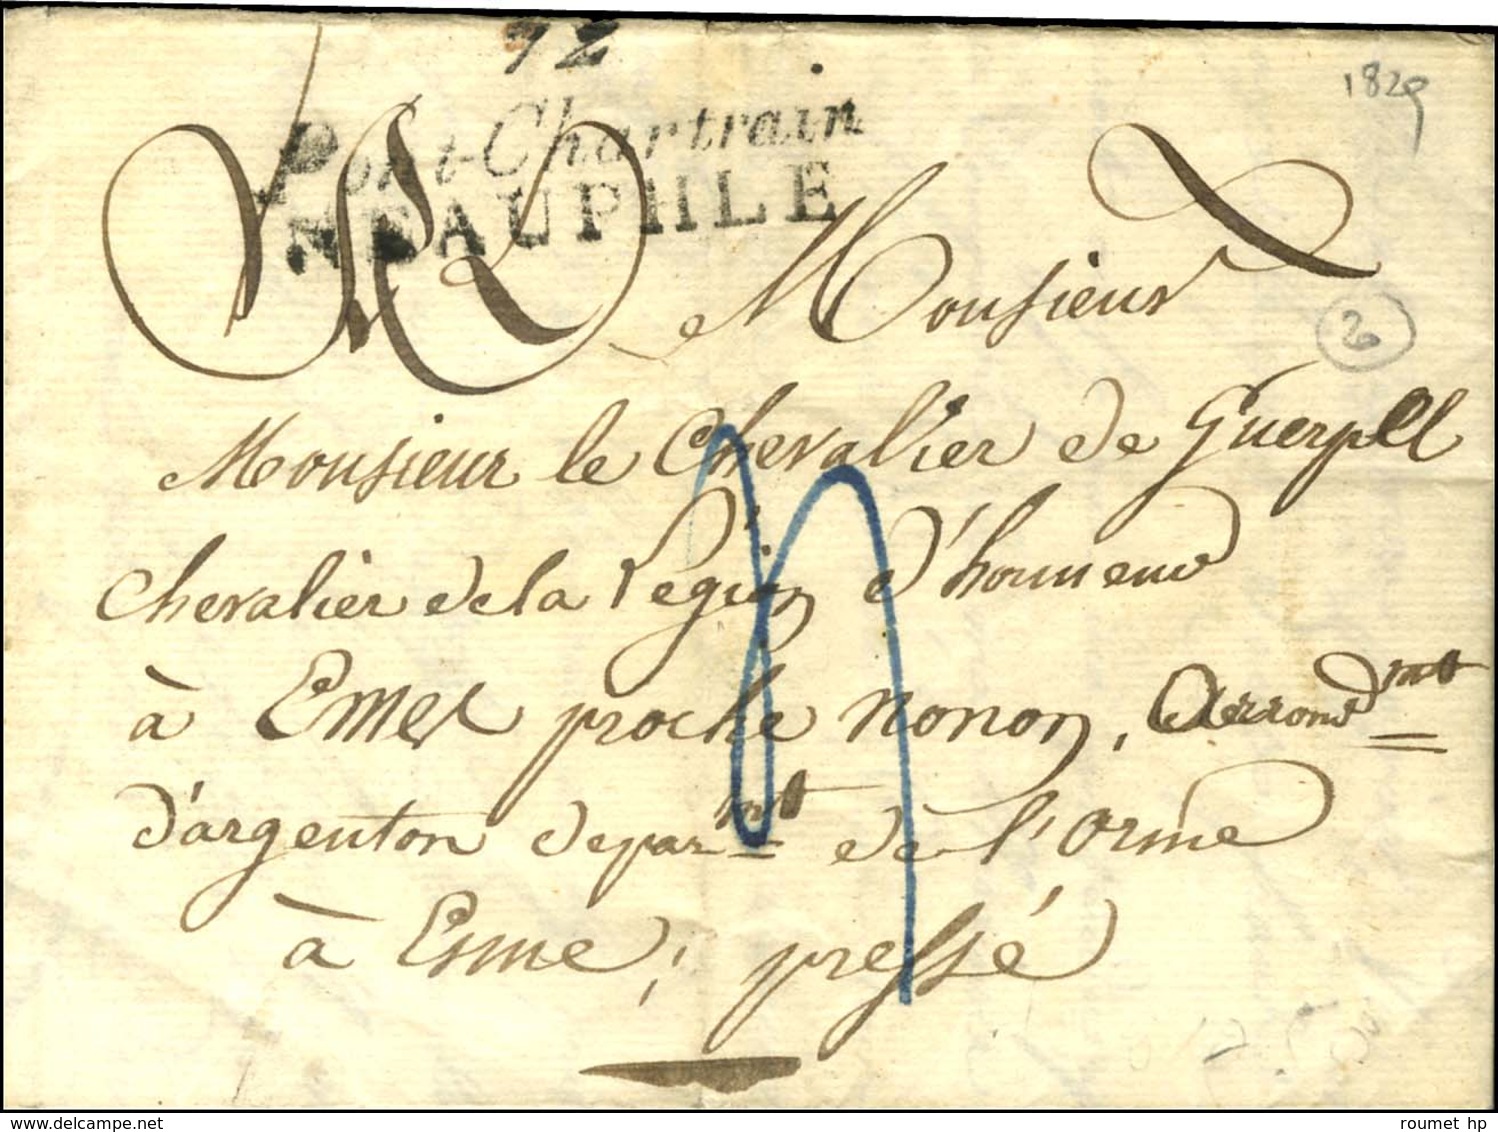 72
1829
Pont-Chartrain
NEAUPHLE
Monsieur
2
Monsieur le Chevalier de Guerpel
Chevalier de la Légion d'honneur
à Emes proche nonon, Arrondmt
d'argenton deparmt de l'orme
à Esme; pressé
www.delcampe.net
roumet hp